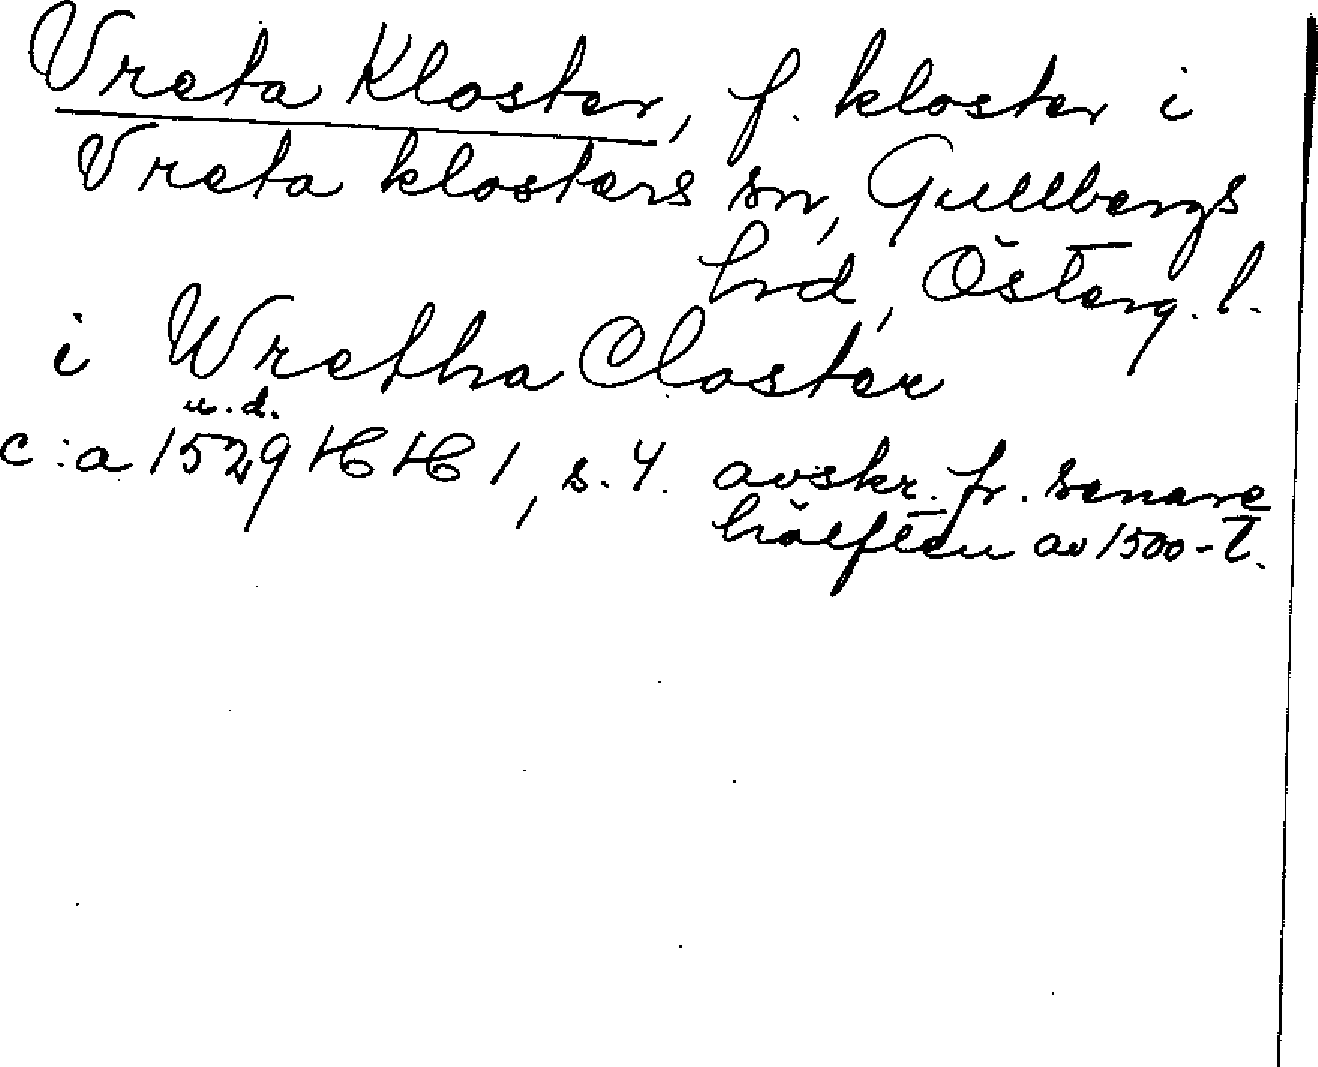 Vreta Kloster, f. kloster i
Vreta klosters sn, Gullbergs
hd, Österg. l.
i Wretha Closter
u.d.
c:a 1529 HH 1, s. 4. avskr. fr. senare
hälften av 1500-t.